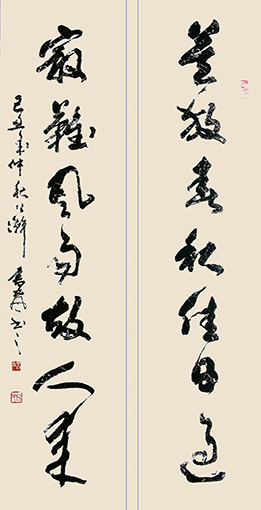 莫放春秋佳日過
最難風雨故人來
己丑年仲秋
書之